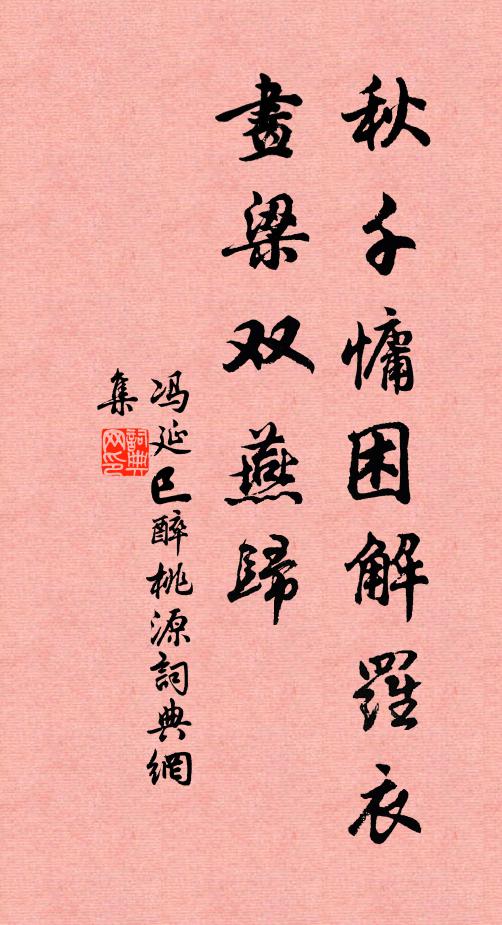 秋千慵困解羅衣
畫梁双燕歸
冯延巳醉桃源詞典網
集
詞典网印